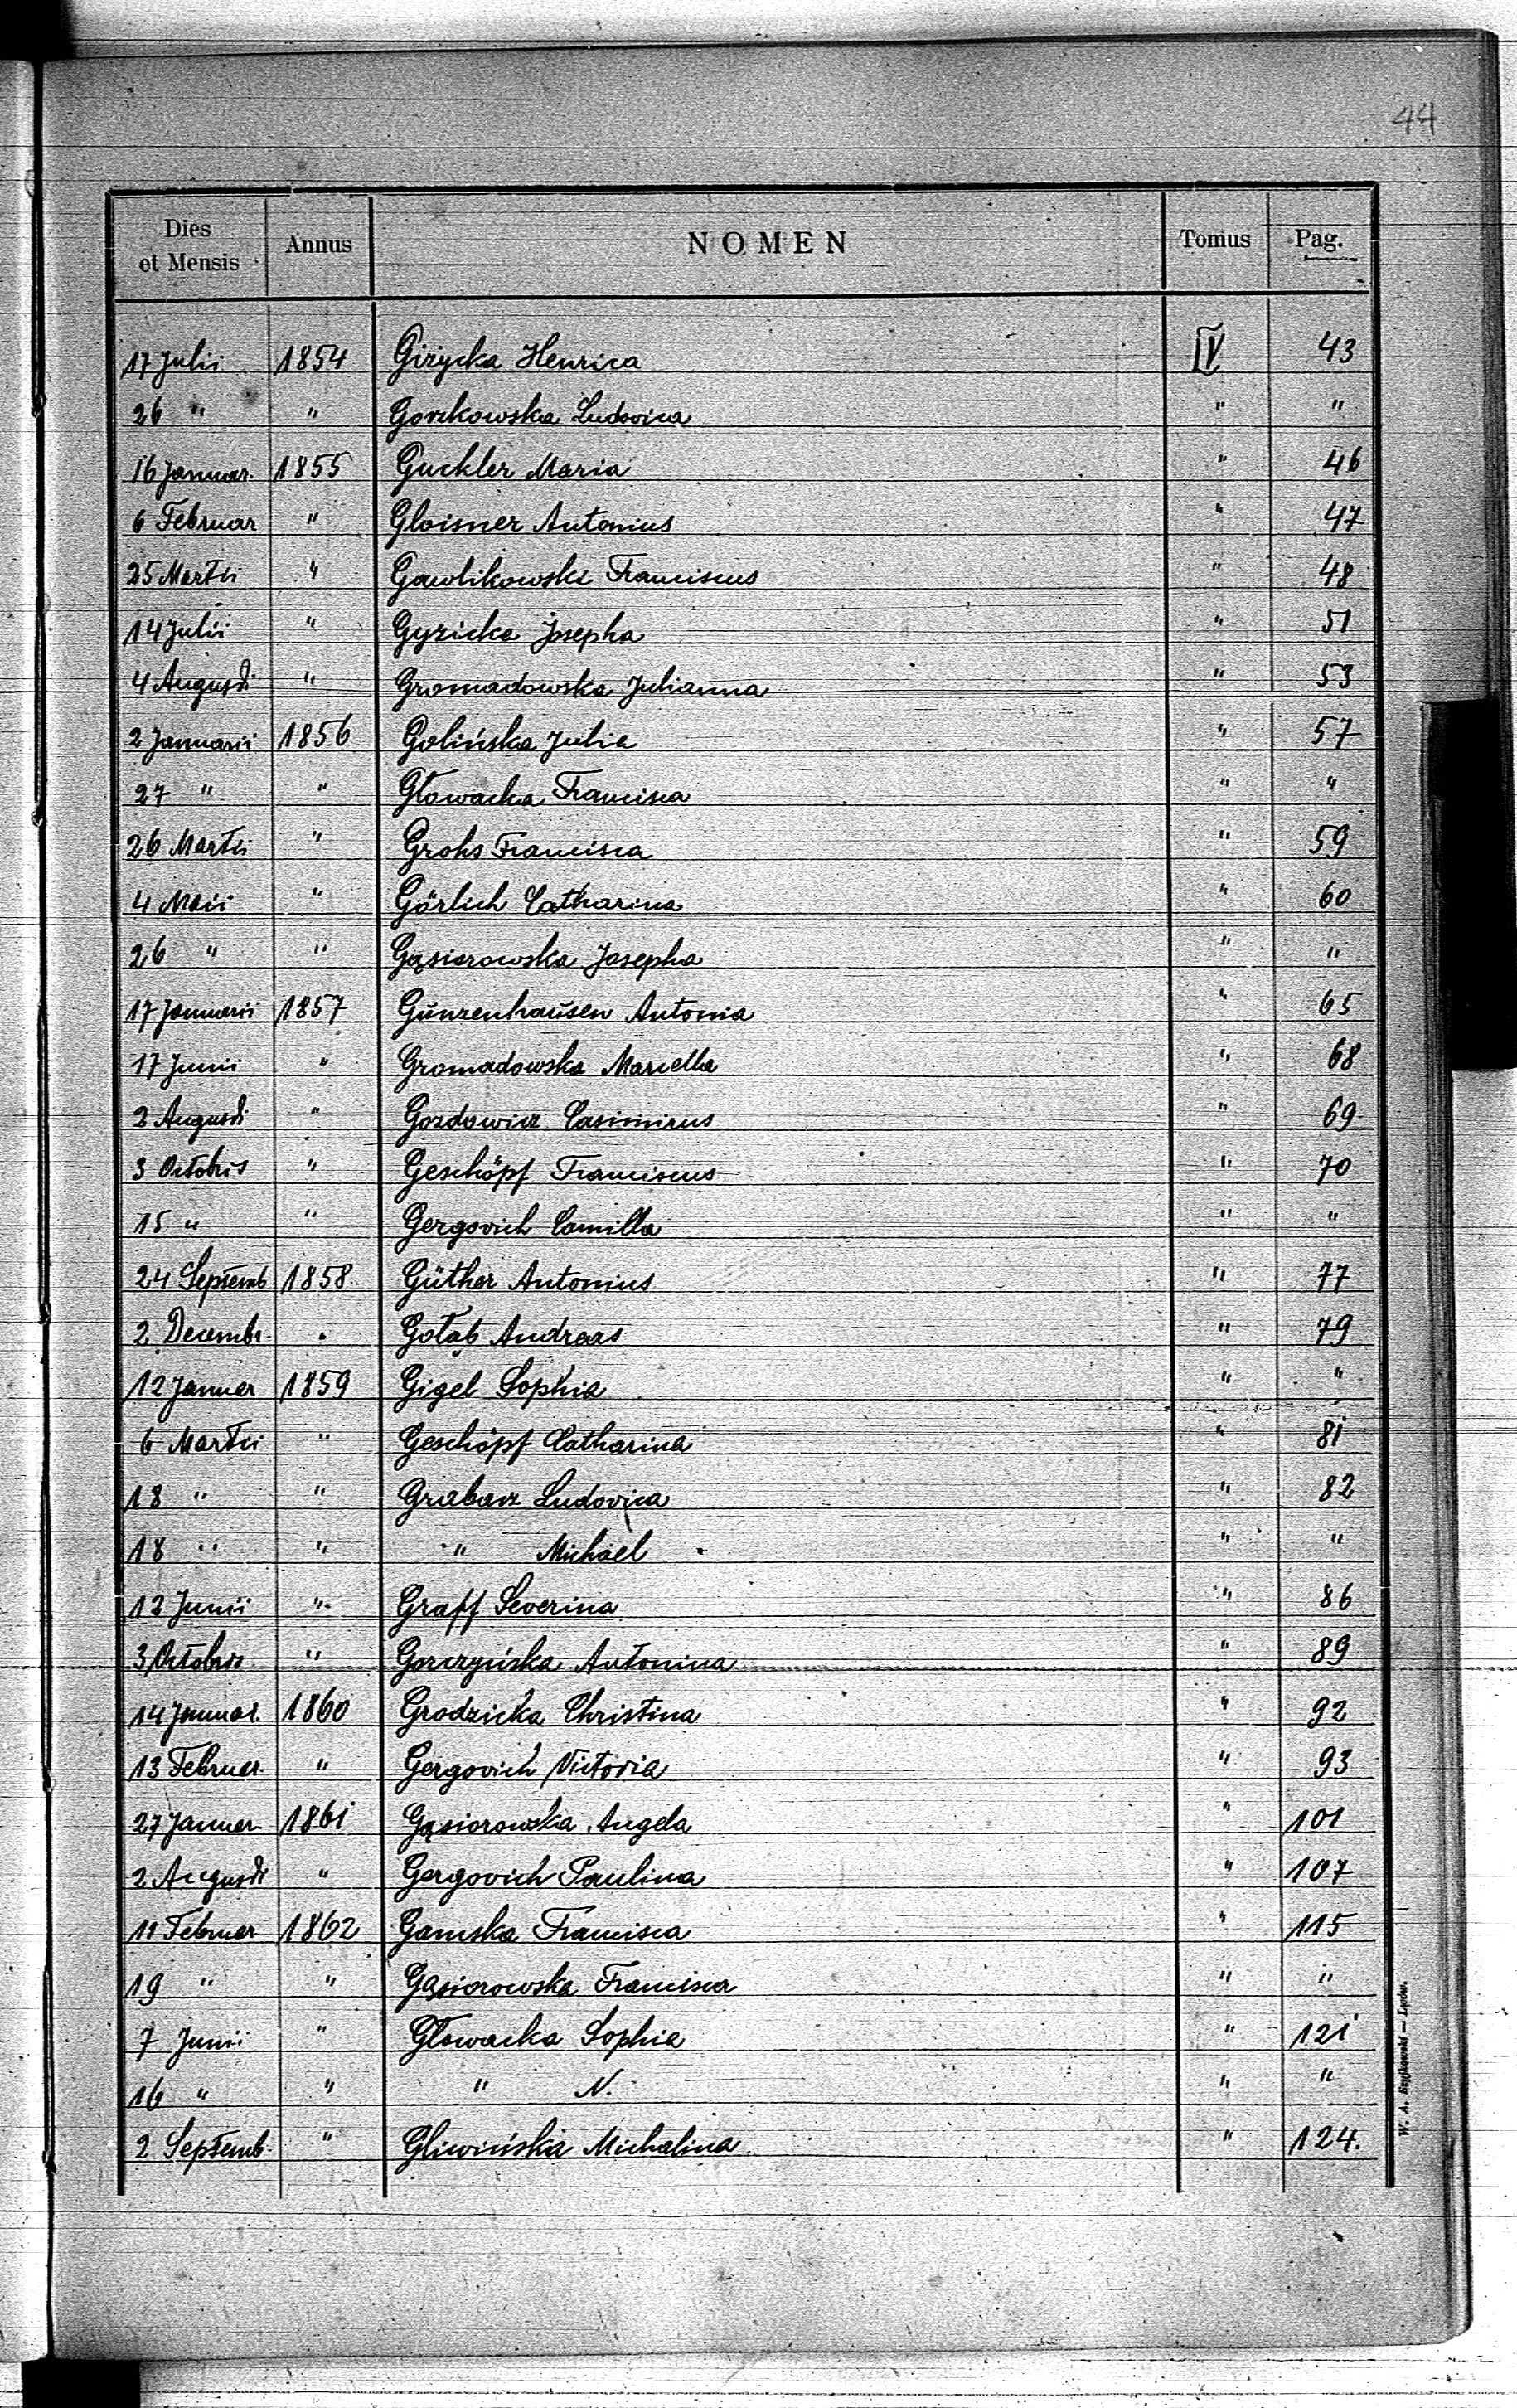 44
Dies et Mensis Annus NOMEN Tomus Pag.
17 Julii 1854 Giżycka Henrica IV 43
26 " " Gorzkowska Ludovica " "
16 Januar. 1855 Guckler Maria " 46
6 Februar " Gloisner Antonius " 47
25 Martii " Gawlikowski Franciscus " 48
14 Julii " Gyzicka Josepha " 51
4 Augusti " Gromadowska Julianna " 53
2 Januarii 1856 Golińska Julia " 57
27 " " Głowacka Francisca " "
26 Martii " Grohs Francisca " 59
4 Maii " Görlich Catharina " 60
26 " " Gąsiorowska Josepha " "
17 Januarii 1857 Günzenhausen Antonia " 65
17 Junii " Gromadowska Marcella " 68
2 Augusti " Gozdowicz Casimirus " 69
3 Octobris " Geschöpf Franciscus " 70
15 " " Gergovich Camilla " "
24 Septemb 1858 Güther Antonius " 77
2 Decembr. " Gołąb Andreas " 79
12 Januar 1859 Gigel Sophia " "
6 Martii " Geschöpf Catharina " 81
18 " " Grabarz Ludovica " 82
18 " " " Michael " "
12 Junii " Graff Severina " 86
3 Octobris " Gorczyńska Antonina " 89
14 Januar. 1860 Grodzicka Christina " 92
13 Februar. " Gergovich Victoria " 93
27 Januar 1861 Gąsiorowska Angela " 101
2 Augusti " Gergovich Paulina " 107
11 Februar 1862 Gamska Francisca " 115
19 " " Gąsiorowska Francisca " "
7 Junii " Głowacka Sophia " 121
16 " " " N. " "
2 Septemb. " Gliwińska Michalina " 124.
W. A. Szyjkowski — Lwów.